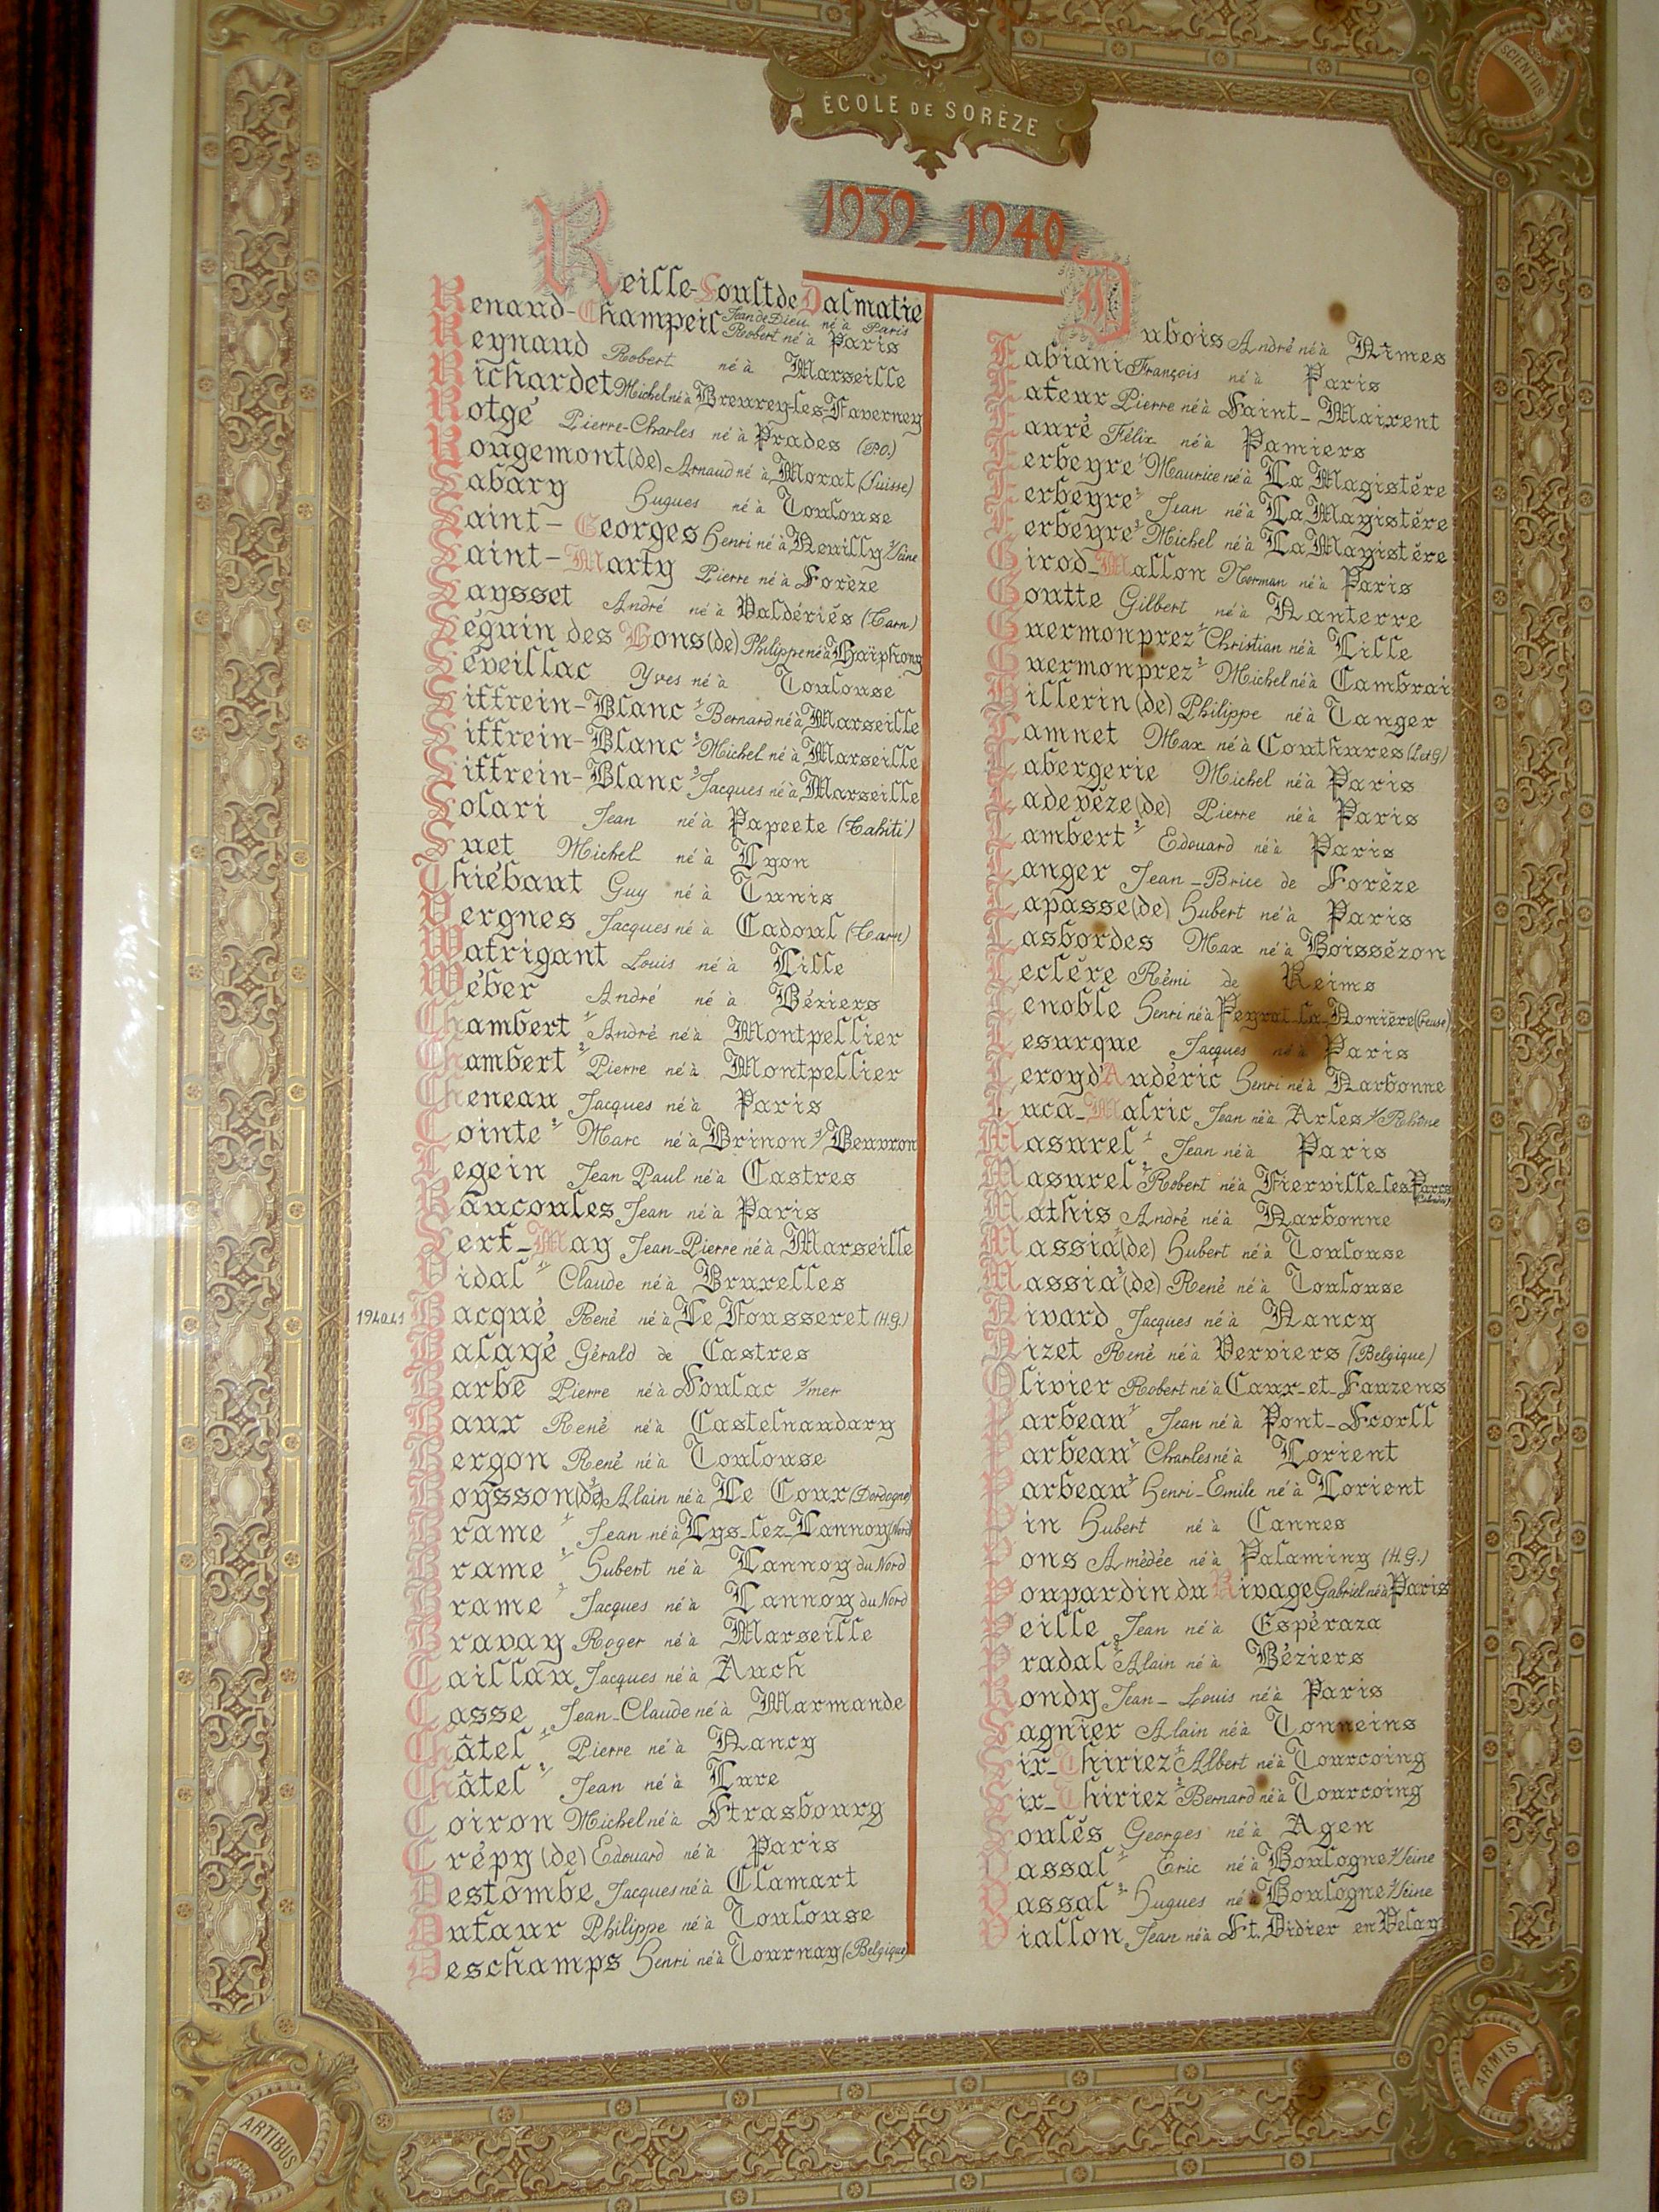 SCIENTIIS
ÉCOLE DE SORÈZE
1939_1940
Reille-Soult de Dalmatie
Jean de Dieu né à Paris
Renaud-Champeil Robert né à Paris
Reynaud Robert né à Marseille
Richardet Michel né à Breurey-les-Faverney
Rotgé Pierre-Charles né à Prades (P.O.)
Rougemont (de) Arnaud né à Morat (Suisse)
Sabary Hugues né à Toulouse
Saint-Georges Henri né à Neuilly s/Seine
Saint-Marty Pierre né à Sorèze
Saysset André né à Valdériès (Tarn)
Séguin des Hons (de) Philippe né à Haïphong
Séveillac Yves né à Toulouse
Siffrein-Blanc 1/ Bernard né à Marseille
Siffrein-Blanc 2/ Michel né à Marseille
Siffrein-Blanc 3/ Jacques né à Marseille
Solari Jean né à Papeete (Tahiti)
Suet Michel né à Lyon
Thiébaut Guy né à Tunis
Vergnes Jacques né à Cadoul (Tarn)
Watrigant Louis né à Lille
Wéber André né à Béziers
Chambert 1/ André né à Montpellier
Chambert 2/ Pierre né à Montpellier
Cheneau Jacques né à Paris
Cointe 2/ Marc né à Brinon s/Beuvron
Legein Jean Paul né à Castres
Raucoules Jean né à Paris
Sert_May Jean-Pierre né à Marseille
Vidal 1/ Claude né à Bruxelles
1940.41 Bacqué René né à Le Fousseret (H.G.)
Balagé Gérald de Castres
Barbe Pierre né à Soulac s/mer
Baux René né à Castelnaudary
Bergon René né à Toulouse
Boysson (de) Alain né à Le Coux (Dordogne)
Brame 1/ Jean né à Lys_lez_Lannoy (Nord)
Brame 2/ Hubert né à Lannoy du Nord
Brame 3/ Jacques né à Lannoy du Nord
Bravay Roger né à Marseille
Caillau Jacques né à Auch
Casse Jean_Claude né à Marmande
Châtel 1/ Pierre né à Nancy
Châtel 2/ Jean né à Lure
Coiron Michel né à Strasbourg
Crépy (de) Edouard né à Paris
Destombe Jacques né à Clamart
Dufaur Philippe né à Toulouse
Deschamps Henri né à Tournay (Belgique)
Dubois André né à Nimes
Fabiani François né à Paris
Fateur Pierre né à Saint_Maixent
Fauré Félix né à Pamiers
Ferbeyre 1/ Maurice né à La Magistère
Ferbeyre 2/ Jean né à La Magistère
Ferbeyre 3/ Michel né à La Magistère
Girod_Mallon Norman né à Paris
Goutte Gilbert né à Nanterre
Guermonprez 1/ Christian né à Lille
Guermonprez 2/ Michel né à Cambrai
Hillerin (de) Philippe né à Tanger
Lamnet Max né à Couthures (L et G)
Labergerie Michel né à Paris
Ladevèze (de) Pierre né à Paris
Lambert 2/ Edouard né à Paris
Langer Jean_Brice de Sorèze
Lapasse (de) Hubert né à Paris
Lasbordes Max né à Boissézon
Leclère Rémi de Reims
Lenoble Henri né à Peyrat_la_Nonière (Creuse)
Lesurque Jacques né à Paris
Leroy d'Audéric Henri né à Narbonne
Luca_Malric Jean né à Arles s/Rhône
Masurel 1/ Jean né à Paris
Masurel 2/ Robert né à Fierville_les_Parcs (Calvados)
Mathis André né à Narbonne
Massia 1/ (de) Hubert né à Toulouse
Massia 2/ (de) René né à Toulouse
Nivard Jacques né à Nancy
Nizet René né à Verviers (Belgique)
Olivier Robert né à Caux_et_Sauzens
Parbeau 1/ Jean né à Pont_Scorff
Parbeau 2/ Charles né à Lorient
Parbeau 3/ Henri_Emile né à Lorient
Pin Hubert né à Cannes
Pons Amédée né à Palaminy (H.G.)
Poupardin du Rivage Gabriel né à Paris
Peille Jean né à Espéraza
Pradal 2/ Alain né à Béziers
Rondy Jean_Louis né à Paris
Sagnier Alain né à Tonneins
Six_Thiriez 1/ Albert né à Tourcoing
Six_Thiriez 2/ Bernard né à Tourcoing
Soulés Georges né à Agen
Vassal 1/ Eric né à Boulogne s/Seine
Vassal 2/ Hugues né à Boulogne s/Seine
Viallon Jean né à St. Didier en Velay
ARTIBUS
ARMIS